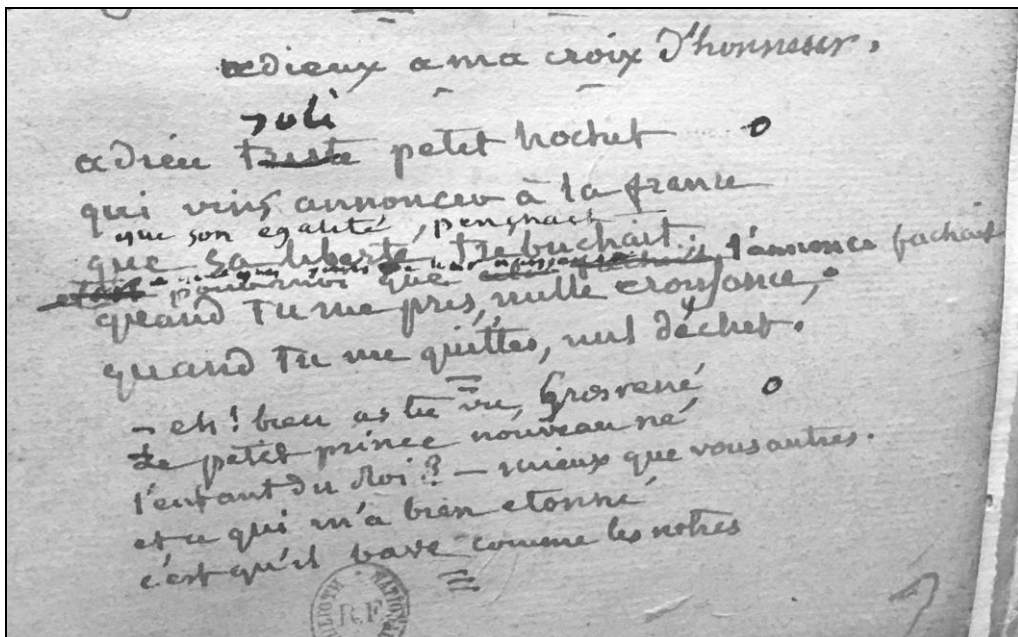 adieux a ma croix d'honneur.
joli
adieu triste petit hochet
qui vins annoncer à la france
que son egalité, penchait
que sa liberté, trebuchait.
pour moi que l'annonce fachait
quand tu me pris, nulle croissance,
quand tu me quittes, nul déchet.
- eh! bien as tu vu, Grosrené
Le petit prince nouveau né
l'enfant du Roi? - mieux que vous autres.
et ce qui m'a bien etonné
c'est qu'il bave comme les notres
R.F.